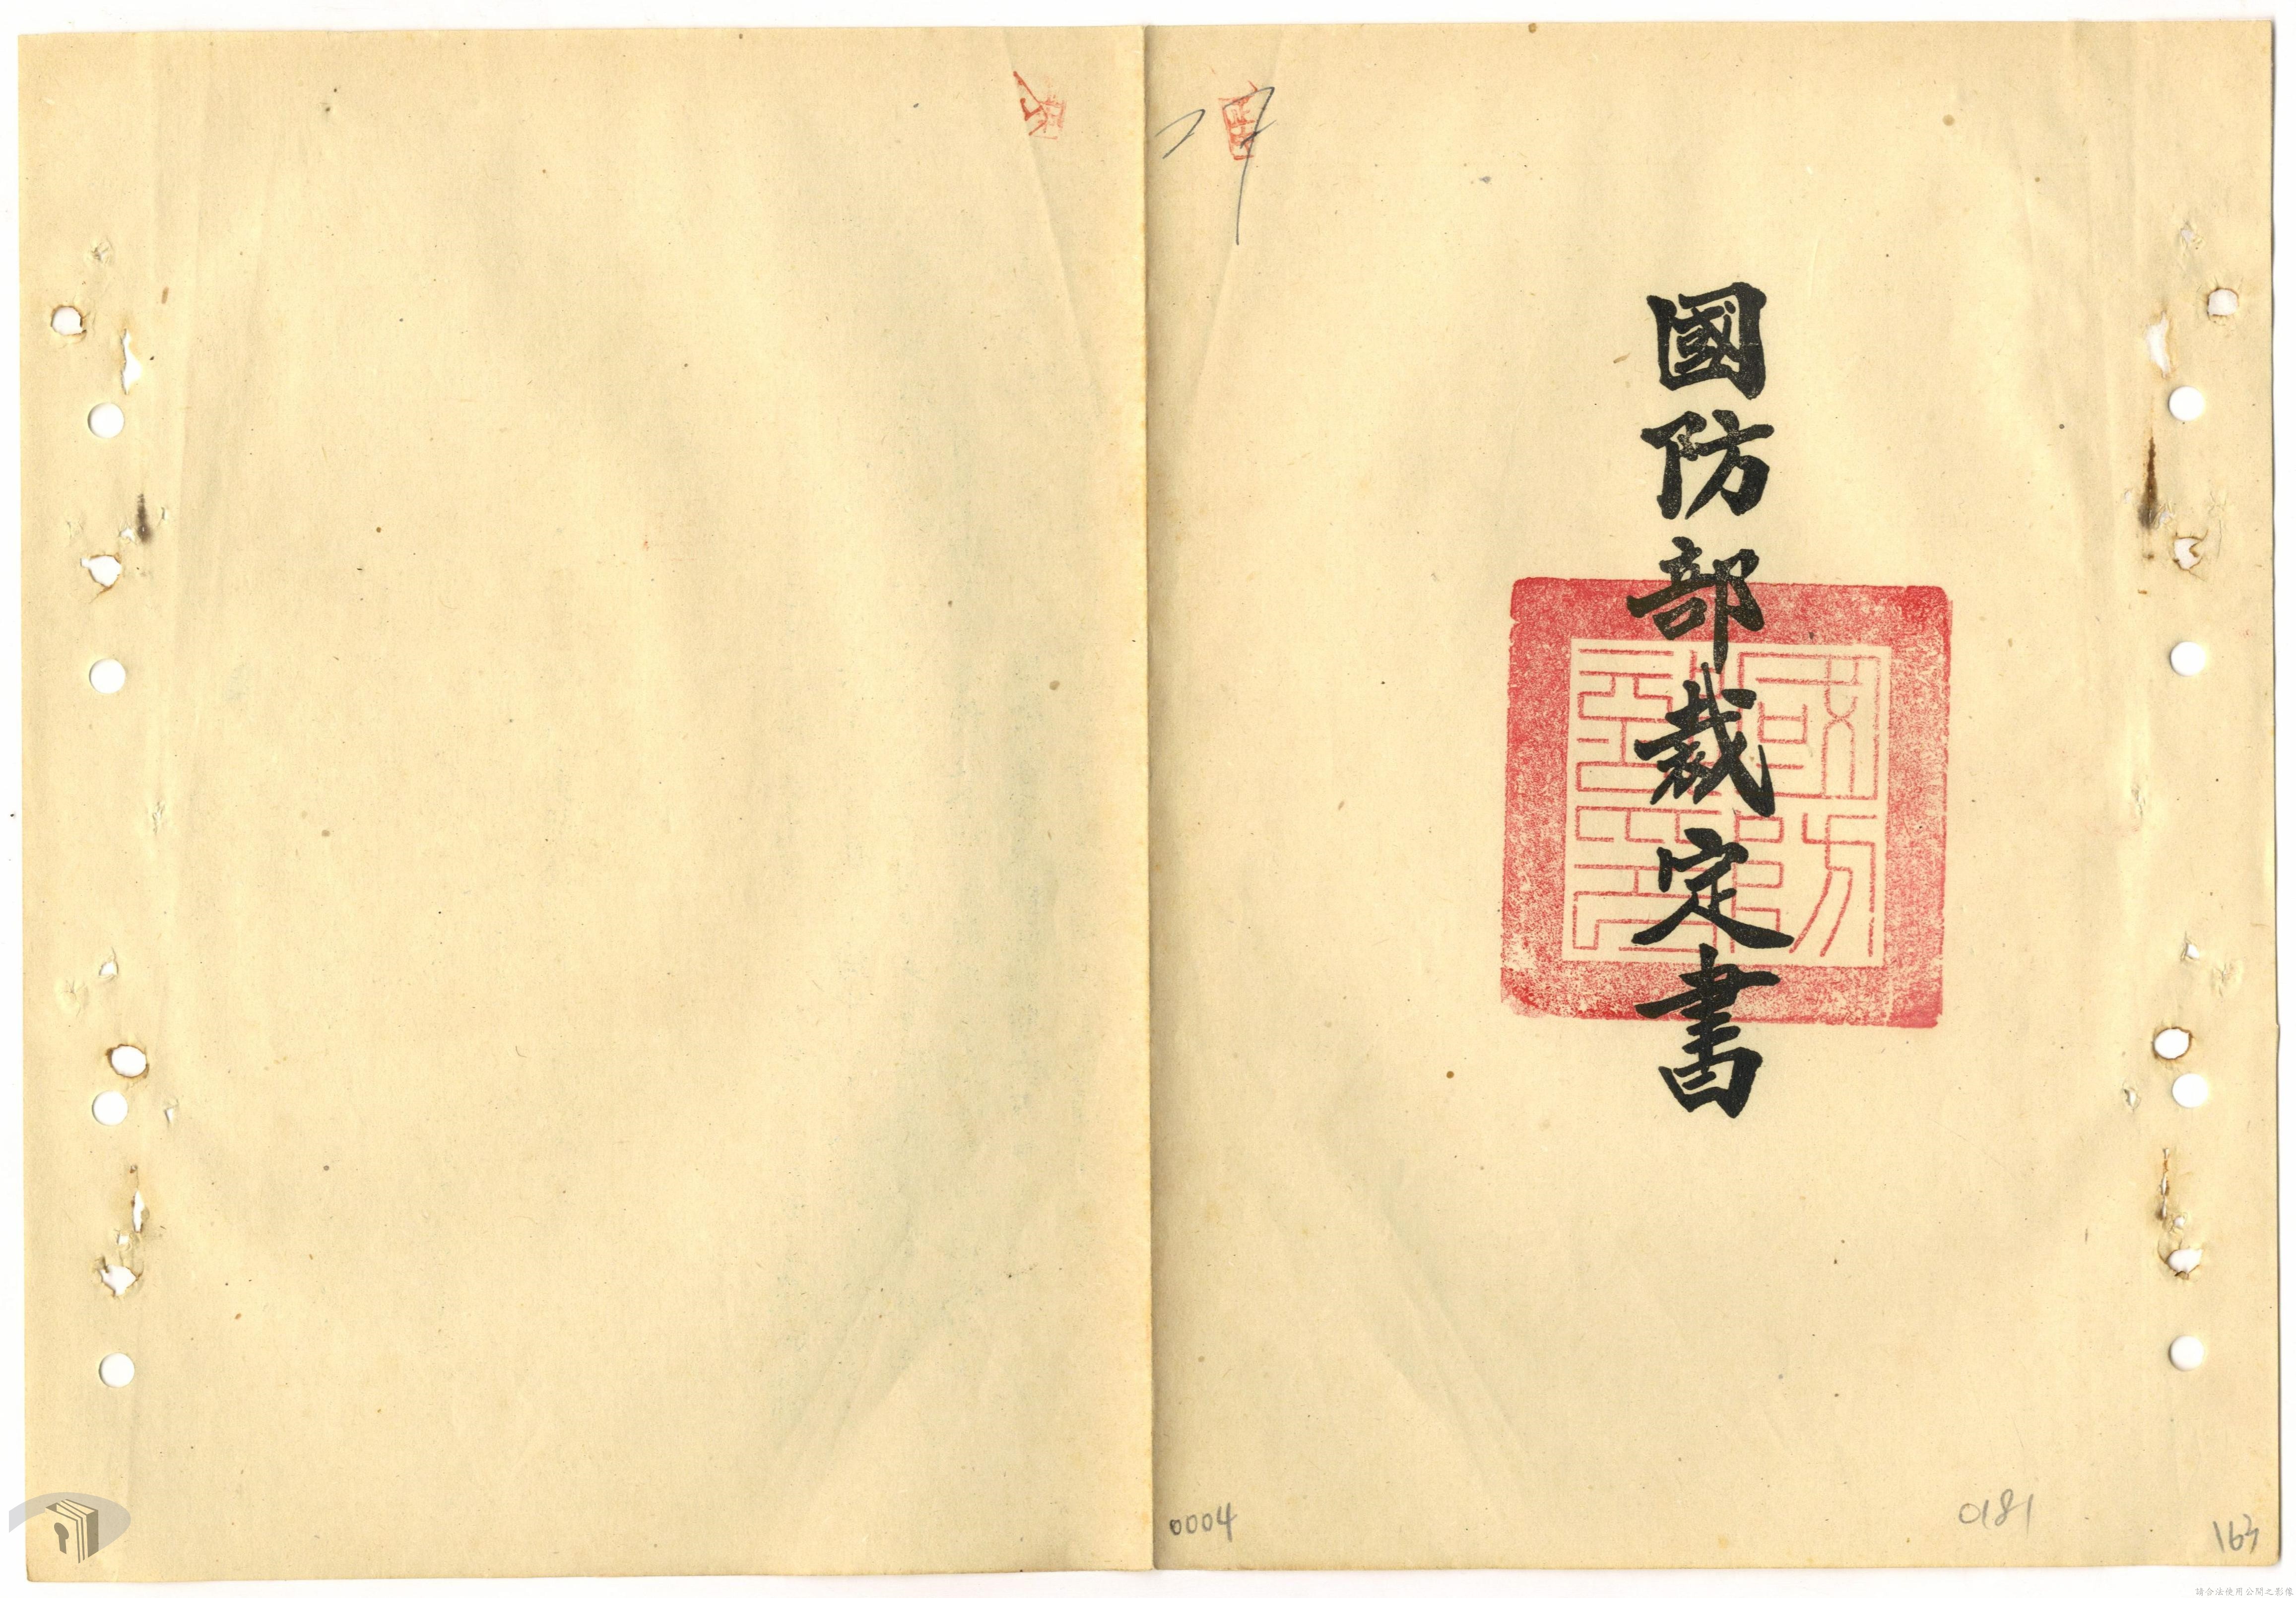 國防部裁定書
國防部印
0004
0181
163
請合法使用公開之影像